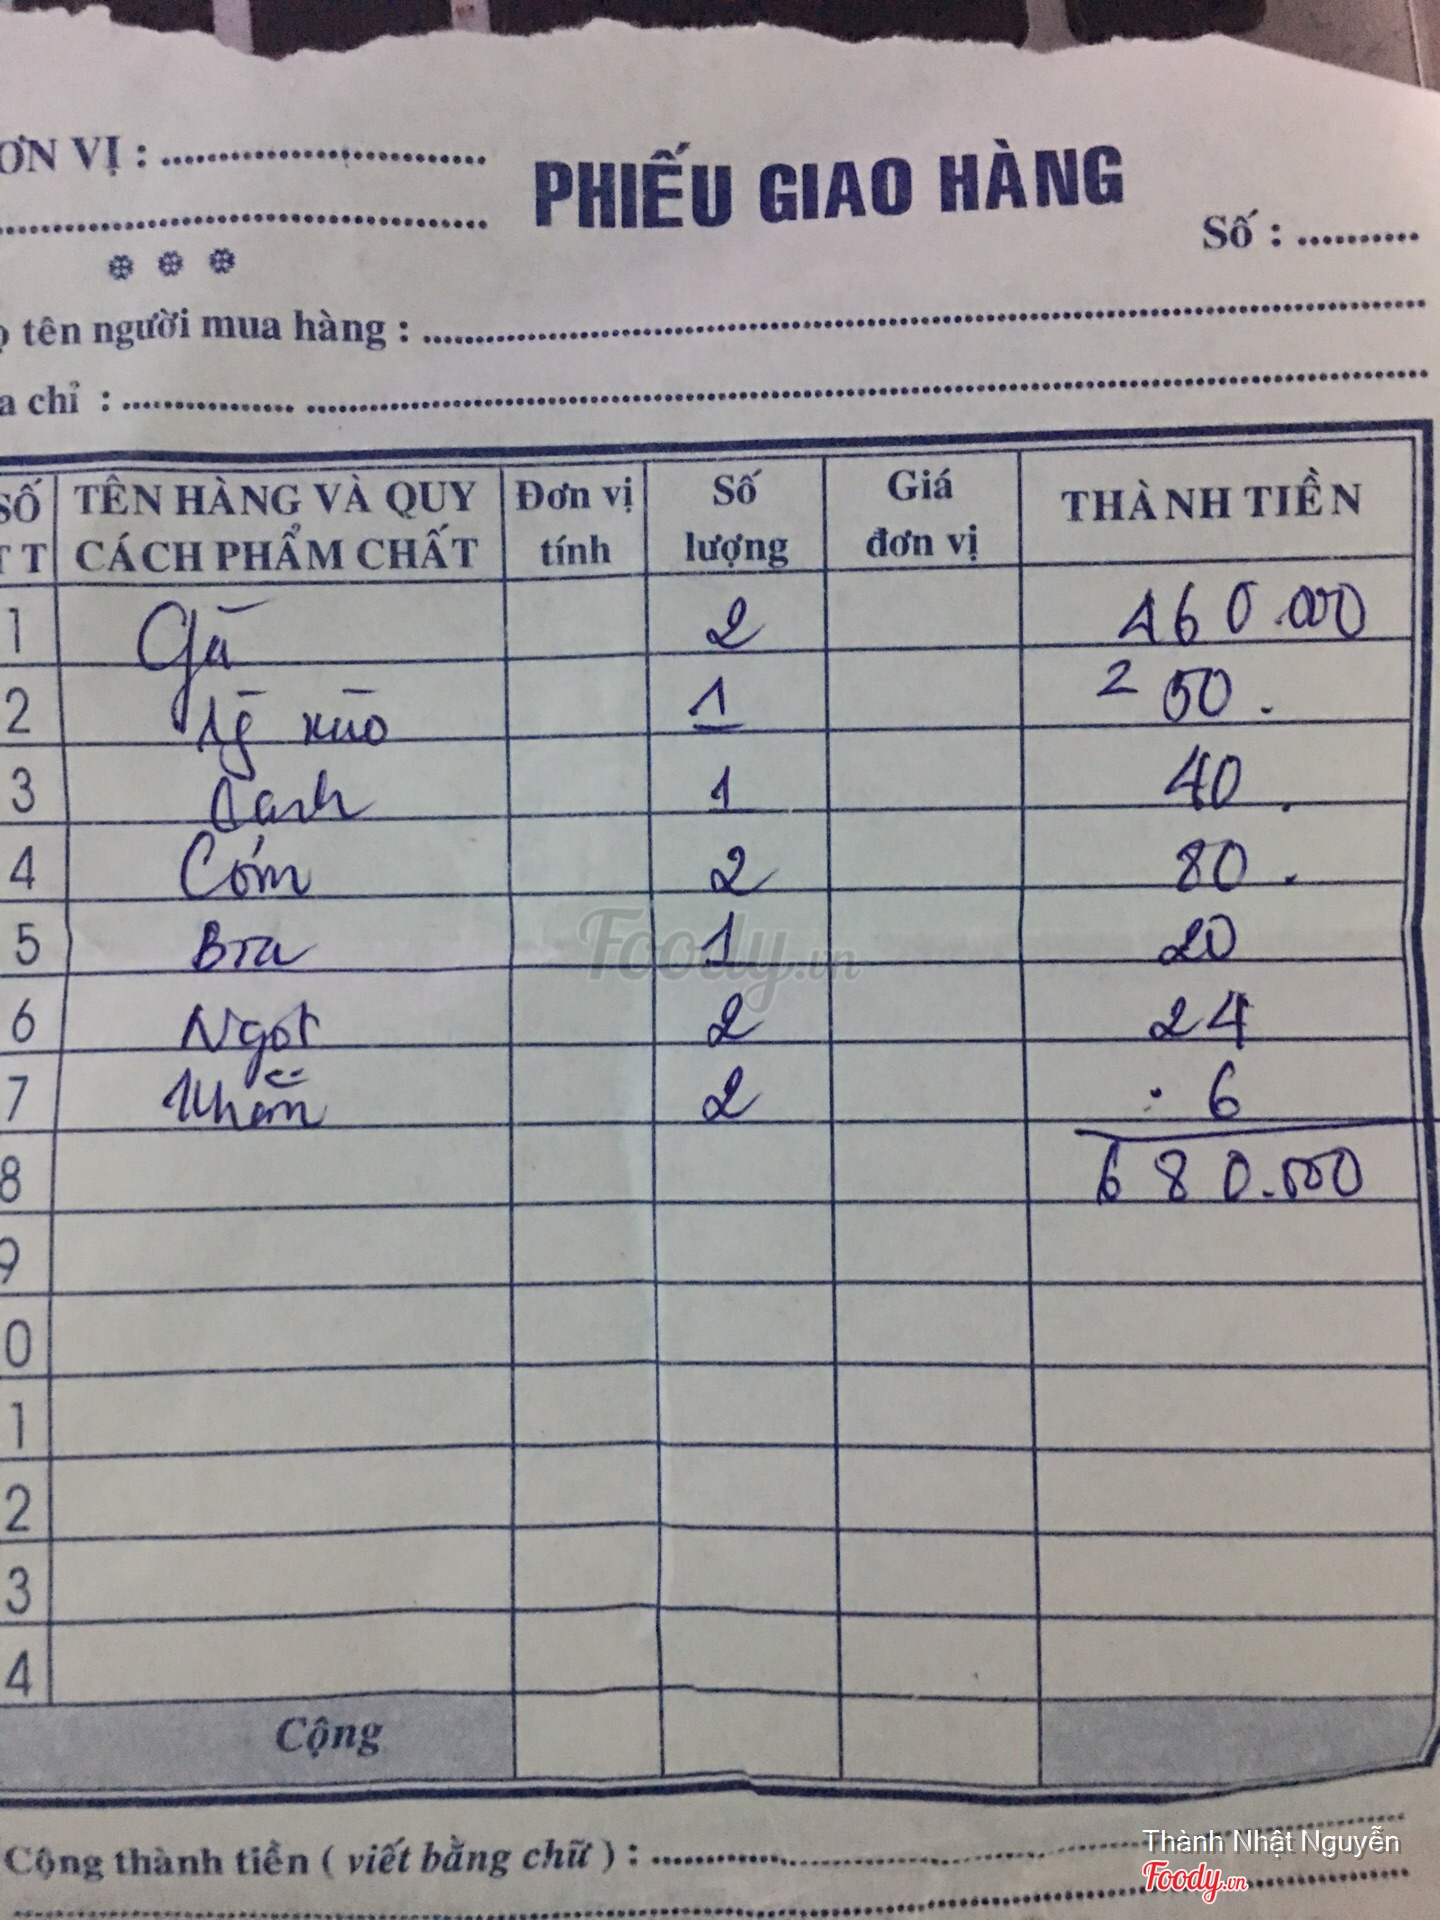 ƠN VỊ :
PHIẾU GIAO HÀNG
Số :
tên người mua hàng :
a chỉ :
SỐ TT TÊN HÀNG VÀ QUY CÁCH PHẨM CHẤT Đơn vị tính Số lượng Giá đơn vị THÀNH TIỀN
1 Gà 2 460.000
2 xào 1 50.
3 Canh 1 40.
4 Cơm 2 80.
5 Bia 1 20
6 Ngọt 2 24
7 Khăn 2 6
8 680.000
9
0
1
2
3
4
Cộng
Cộng thành tiền ( viết bằng chữ ) :
Foody.vn
Thành Nhật Nguyễn
Foody.vn